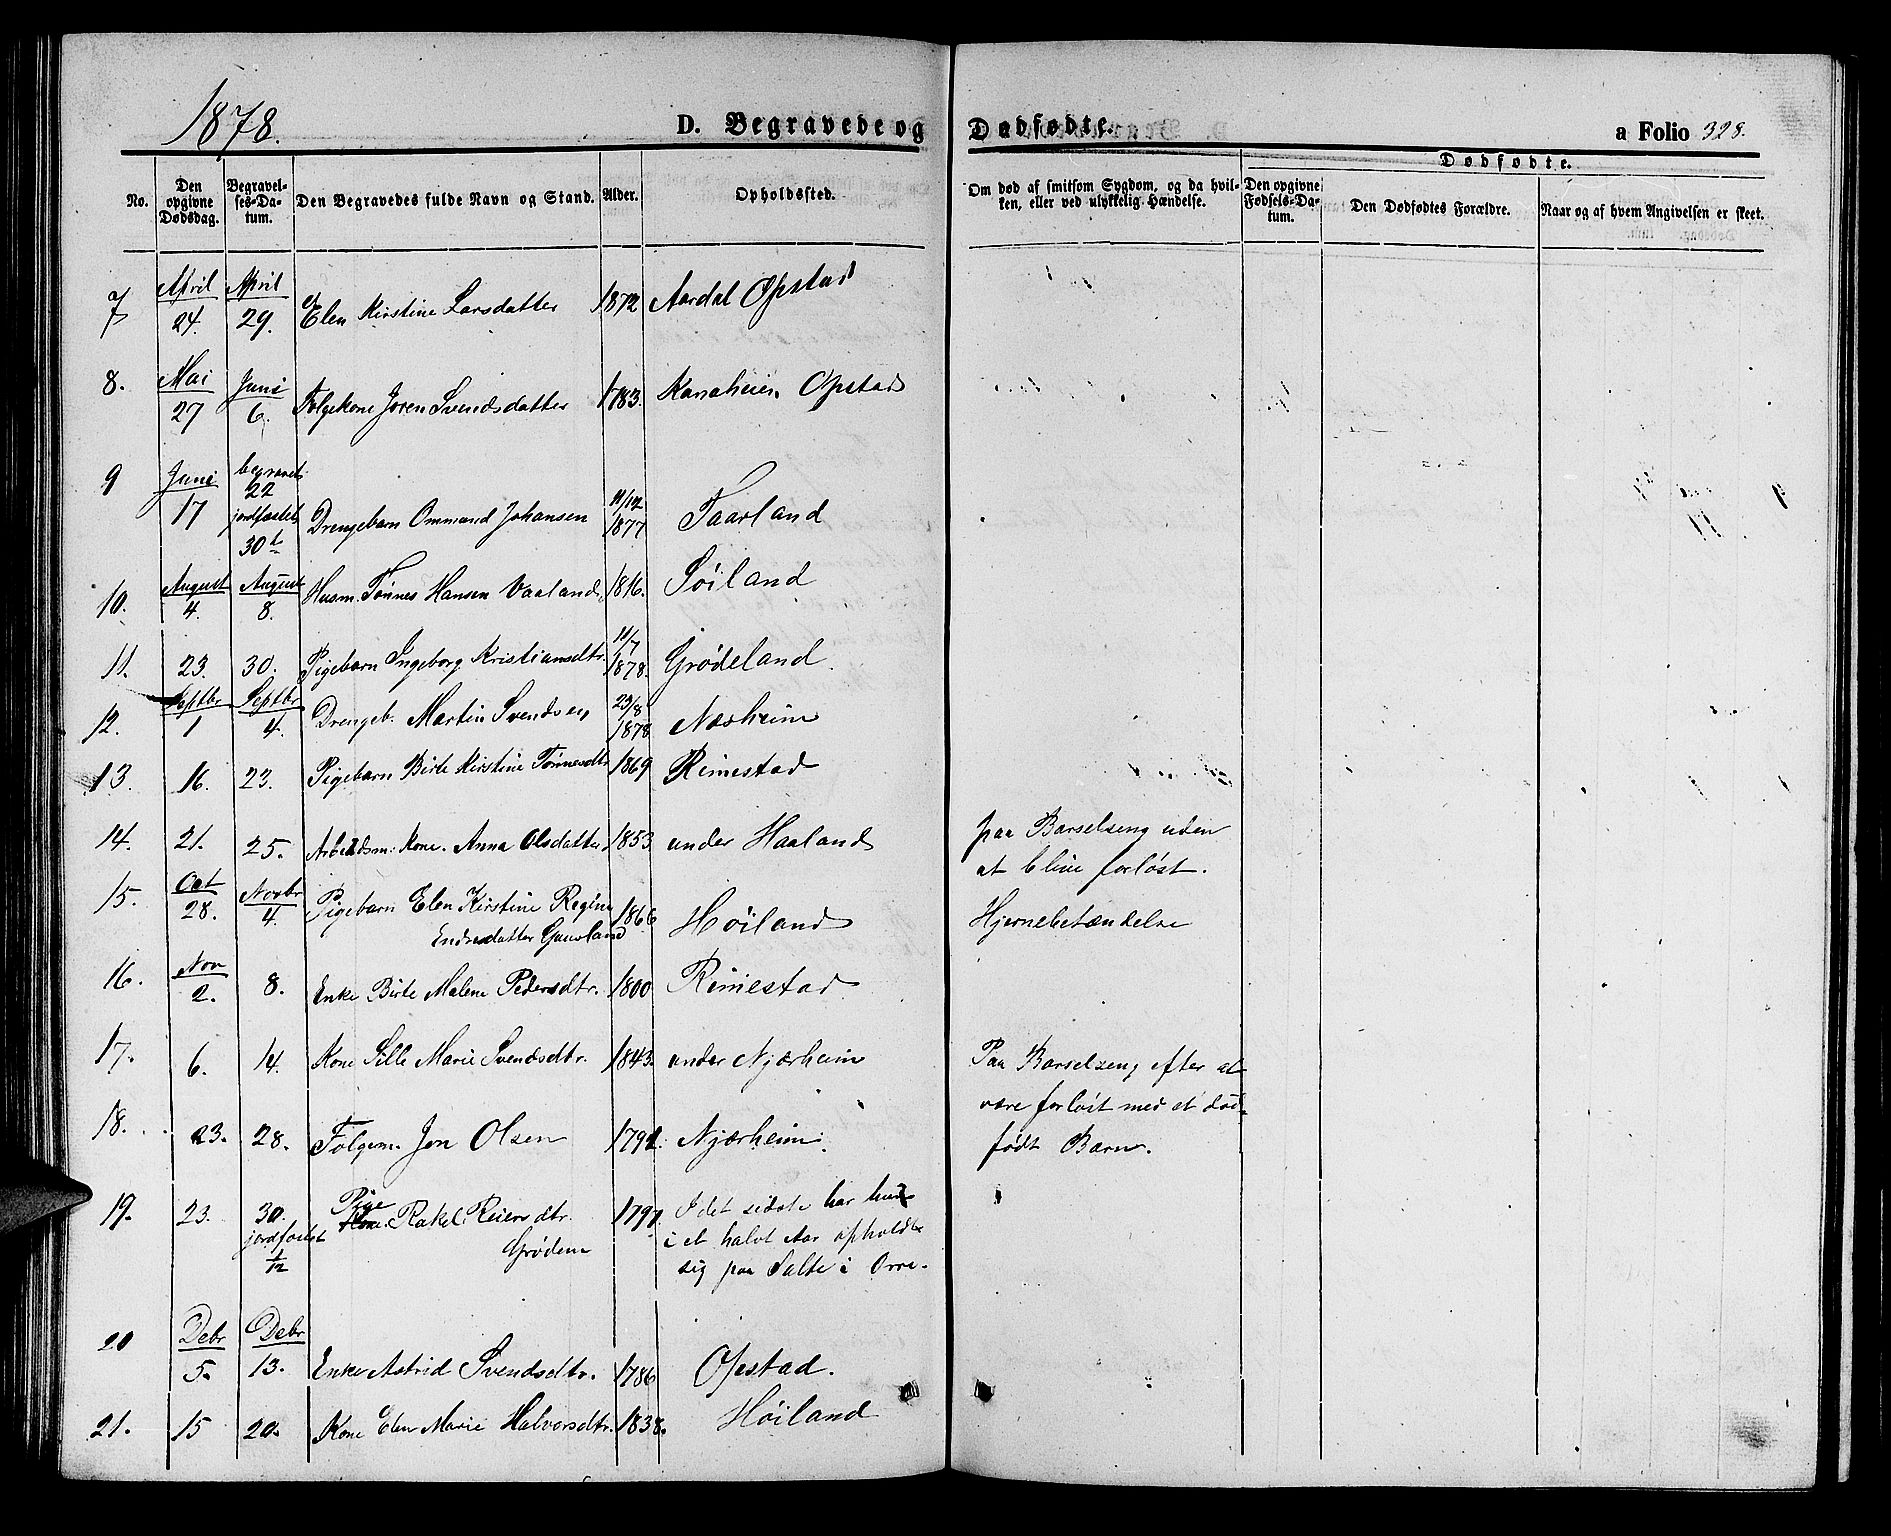 1878. D. Begravede og Dødfødte. a Folio 328.
Dødfødte.
No. Den opgivne Dødsdag. Begravelses-Datum. Den Begravedes fulde Navn og Stand. Alder. Opholdssted. Om død af smitsom Sygdom, og da hvilken, eller ved ulykkelig Hændelse. Den opgivne Fødsels-Datum. Den Dødfødtes Forældre. Naar og af hvem Angivelsen er skeet.
7 April 24. April 29. Elen Kirstine Larsdatter 1872 Aardal Opstad
8. Mai 27 Juni 6. Følgekone Joren Svendsdatter 1783. Kanaheien Opstad
9 Juni 17 begravet 22 jordfæstet 30te Drengebarn Ommund Johansen 11/12 1877 Taarland
10. August 4. August 8. Husm. Tønnes Hansen Vaaland 1816. Søiland
11. 23. 30. Pigebarn Ingeborg Kristiansdtr. 11/7 1878. Grødeland.
12. Septbr 1 Septbr 4. Drengeb. Martin Svendsen 23/8 1878 Næsheim
13. 16. 23. Pigebarn Birte Kirstine Tønnesdtr 1869 Rimestad
14. 21. 25. Arbeidsm. Kone. Anna Olsdatter 1853 under Haaland paa Barselseng uden
at blive forløst.
15. Oct 28. Novbr 4. Pigebarn Elen Kirstine Regine 1866 Høiland Hjernebetændelse
Endresdatter Gausland
16. Nov 2. 8. Enke Birte Malene Pedersdtr. 1800 Rimestad
17. 6. 14. Kone Sille Marie Svendsdtr. 1843. under Njærheim Paa Barselseng efter at
være forløst med et død-
født Barn.
18. 23. 28. Følgem. Jon Olsen 1792. Njærheim.
19. 23. 30. jordfæstet 1/12 Pige Kone Rakel Reiersdtr. 1797. I det sidste har hun
Grødem i et halvt Aar opholdt
sig paa Salte i Orre.
20 Debr 5. Debr 13. Enke Astrid Svendsdtr. 1786 Opstad.
21. 15 20. Kone Elen Marie Halvorsdtr. 1838. Høiland